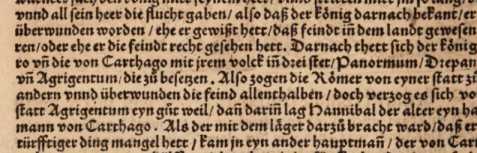 vnnd all sein heer die flucht gaben / also daß der könig darnach bekant / er
überwunden worden / ehe er gewißt hett / daß feindt in dem landt gewesen
ren / oder ehe er die feindt recht gesehen hett. Darnach thett sich der König
ro vñ die von Carthago mit jrem volck iñ drei stet / Panormum / Drepan
vñ Agrigentum / die zů besetzen. Also zogen die Römer von eyner statt zů
andern vnnd überwunden die feind allenthalben / doch verzog es sich vo
statt Agrigentum eyn gůt weil / dañ dariñ lag Hannibal der alter eyn ha
mann von Carthago. Als der mit dem läger darzů bracht ward / daß er
türfftiger ding mangel hett / kam jm eyn ander hauptmañ / der von Car